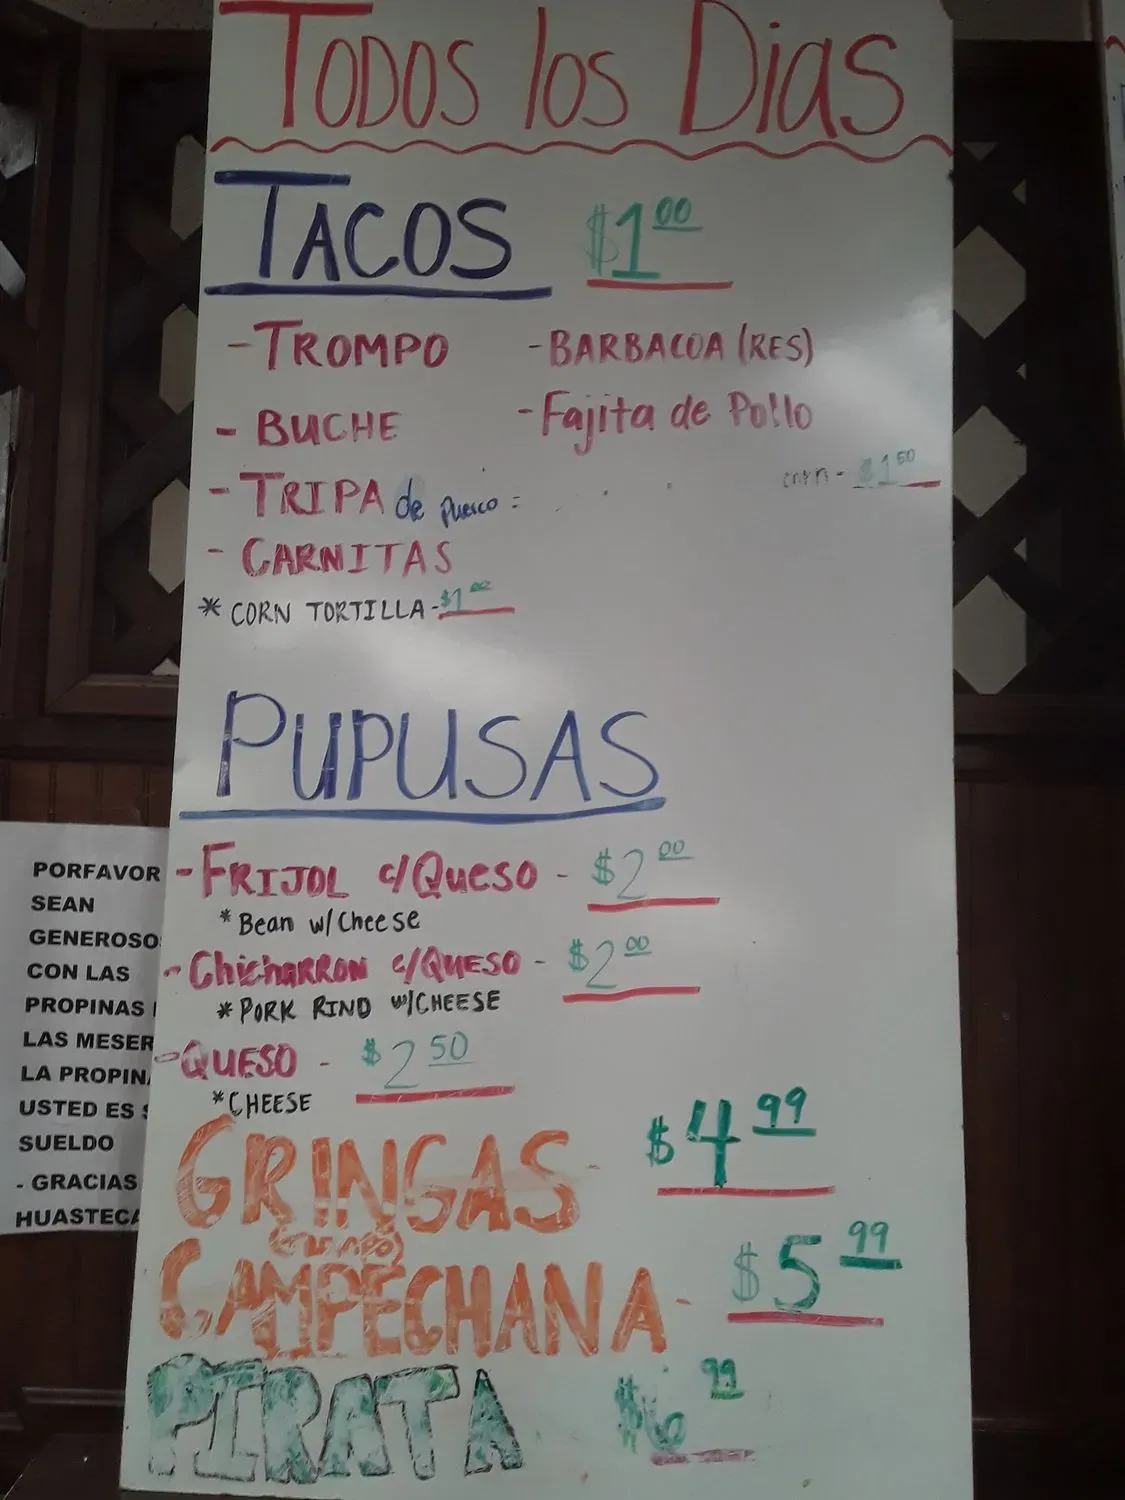 TODOS los Dias
TACOS $1.00
- TROMPO
- BUCHE
- TRIPA de puerco =
- CARNITAS
* CORN TORTILLA - $1.00
- BARBACOA (RES)
- Fajita de Pollo
corn - $1.50
PUPUSAS
- FRIJOL c/QUESO - $2.00
* Bean w/Cheese
- ChichaRRON c/QUESO - $2.00
* PORK RIND w/CHEESE
- QUESO - $2.50
* CHEESE
GRINGAS - $4.99
(TROMPO)
CAMPECHANA - $5.99
PIRATA $6.99
PORFAVOR
SEAN
GENEROSO
CON LAS
PROPINAS
LAS MESER
LA PROPIN
USTED ES
SUELDO
- GRACIAS
HUASTECA